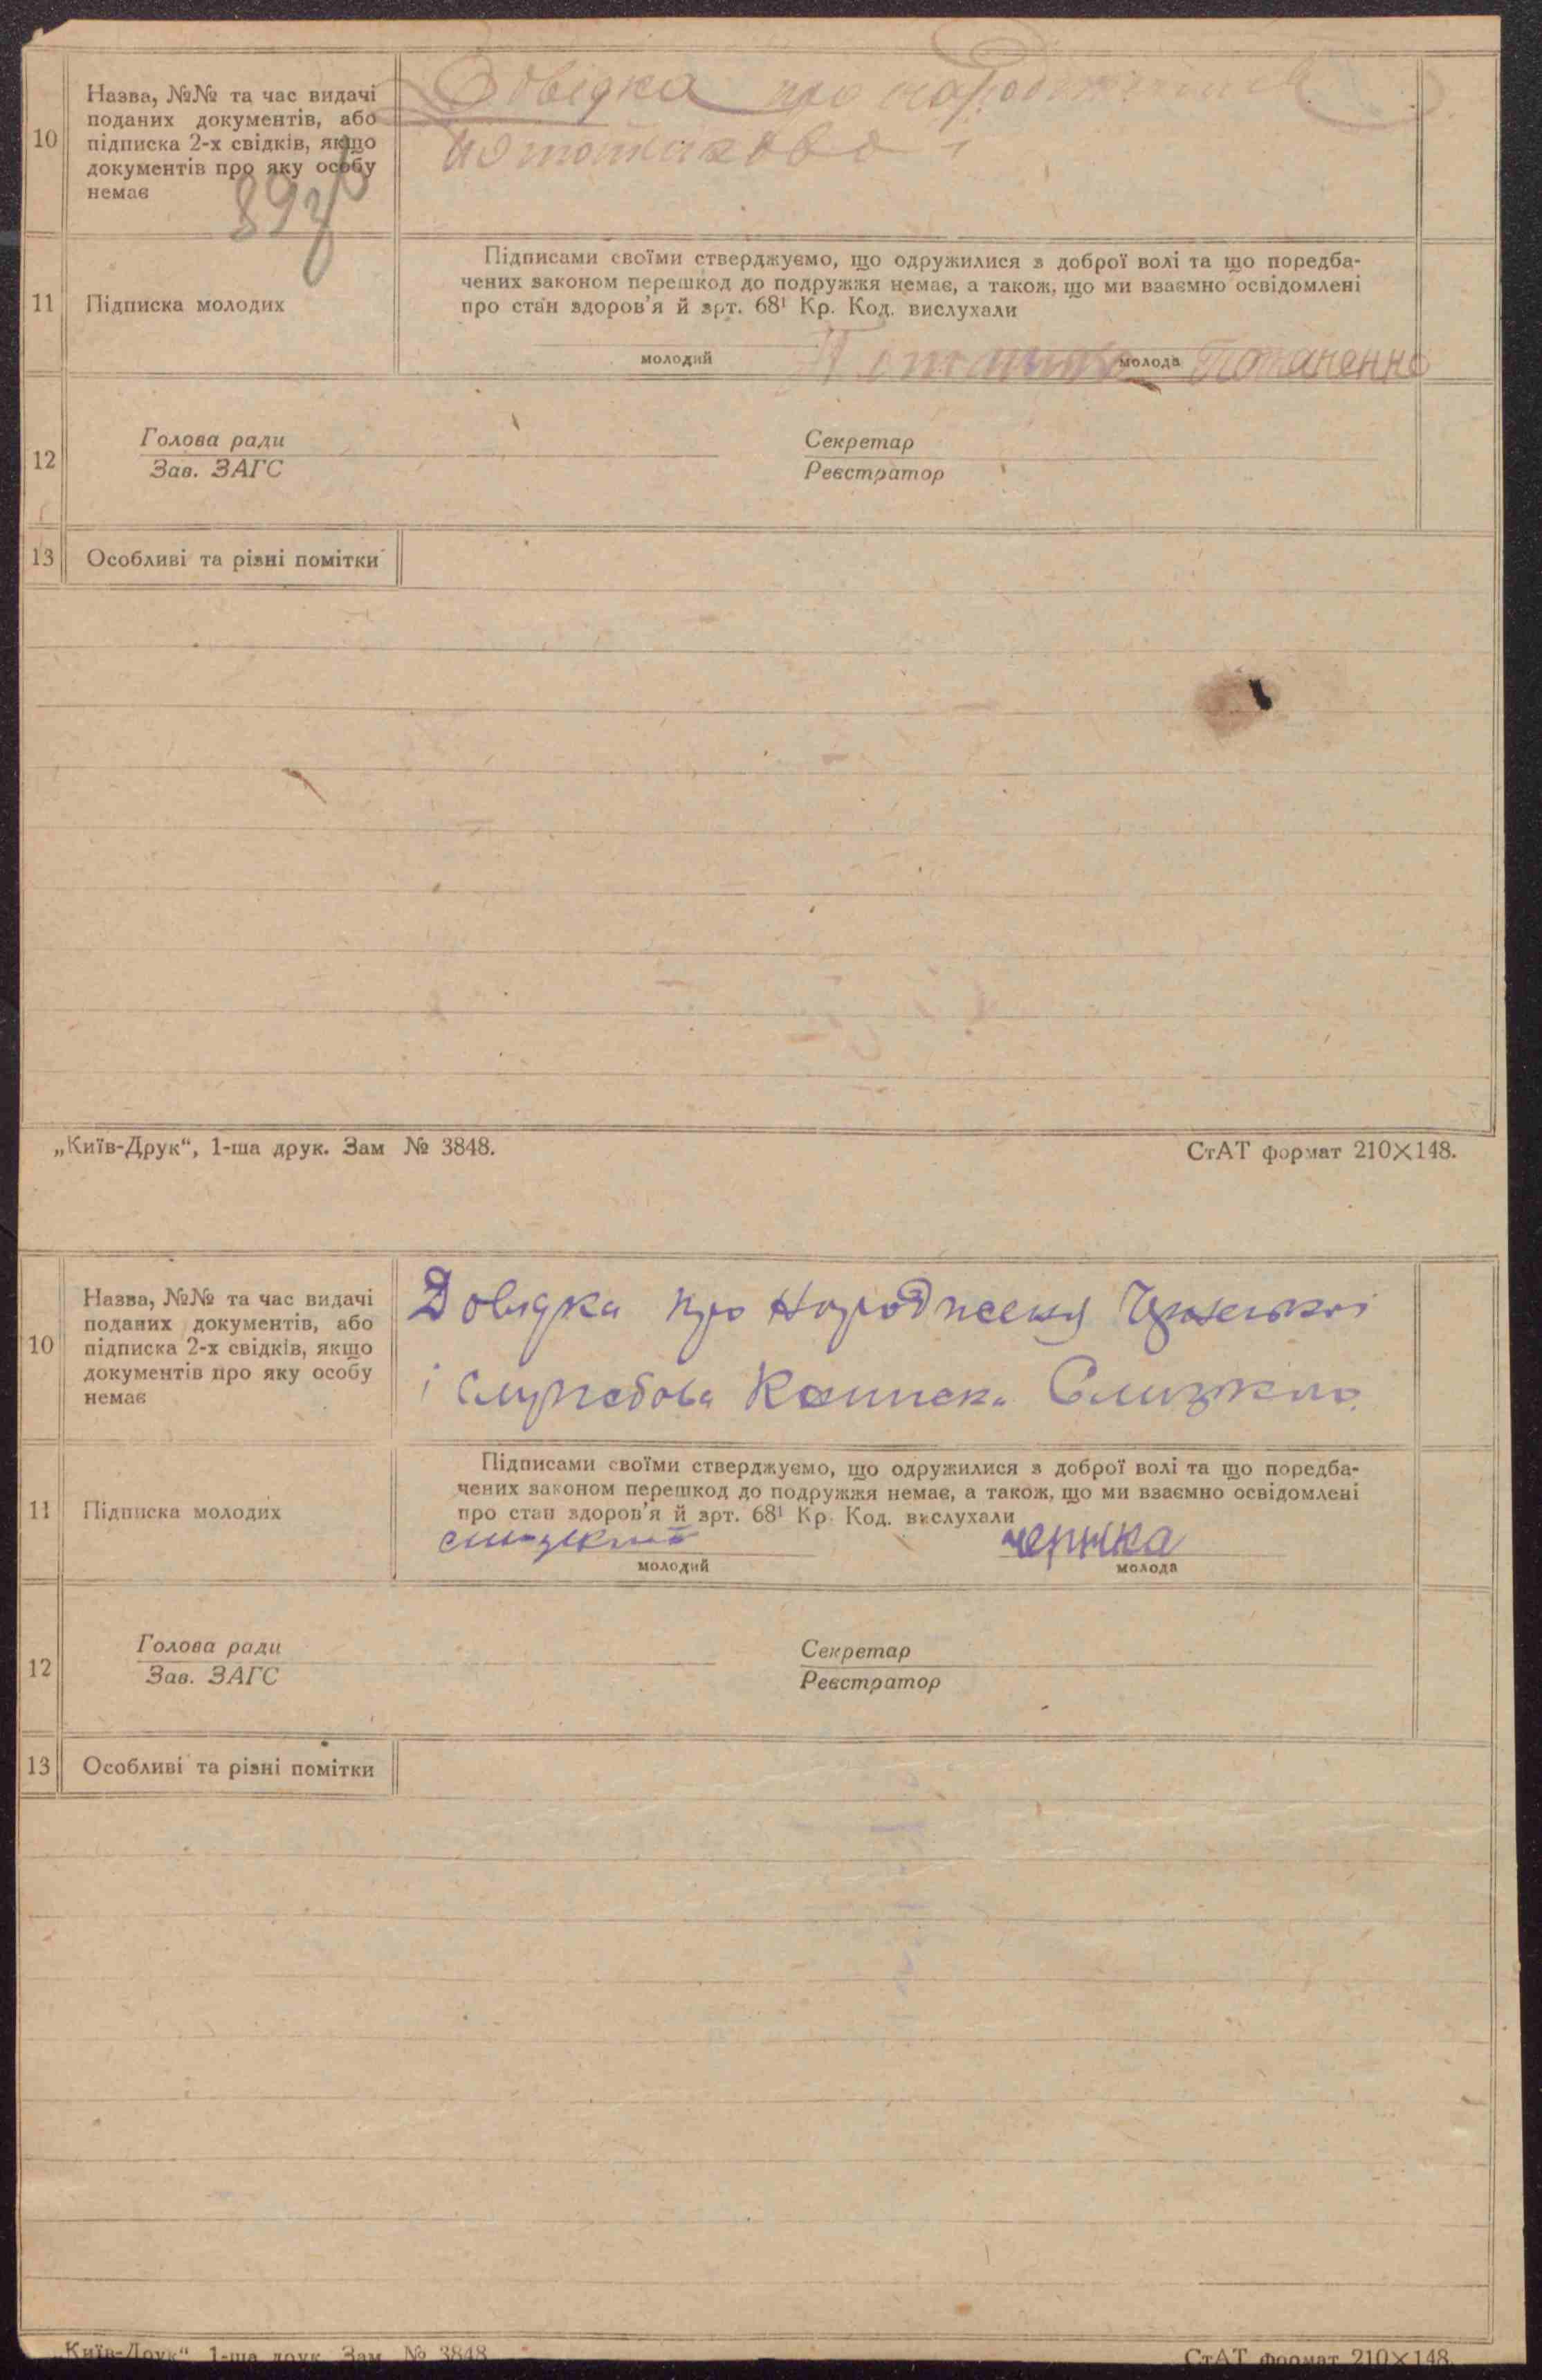 10
Назва, №№ та час видачі
поданих документів, або
підписка 2-х свідків, якщо
документів про яку особу
немає
Довідка про
897
11
Підписка молодих
Підписами своїми стверджуємо, що одружилися з доброї волі та що поредба-
чених законом перешкод до подружжя немає, а також, що ми взаємно освідомлені
про стан здоров'я й арт. 68¹ Кр. Код. вислухали
молодий
молода
12
Голова ради
Зав. ЗАГС
Секретар
Реєстратор
13
Особливі та різні помітки
„Київ-Друк“, 1-ша друк. Зам № 3848.
СтАТ формат 210×148.
10
Назва, №№ та час видачі
поданих документів, або
підписка 2-х свідків, якщо
документів про яку особу
немає
Довідка про народження
і службова
11
Підписка молодих
Підписами своїми стверджуємо, що одружилися з доброї волі та що поредба-
чених законом перешкод до подружжя немає, а також, що ми взаємно освідомлені
про стан здоров'я й арт. 68¹ Кр. Код. вислухали
молодий
молода
12
Голова ради
Зав. ЗАГС
Секретар
Реєстратор
13
Особливі та різні помітки
„Київ-Друк“ 1-ша друк. Зам № 3848
СтАТ формат 210×148.